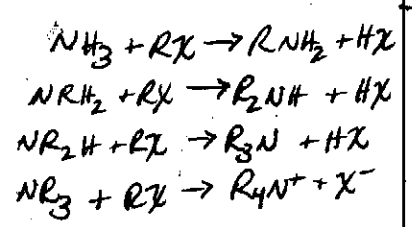 NH₃ + RX → RNH₂ + HX
NRH₂ + RX → R₂NH + HX
NR₂H + RX → R₃N + HX
NR₃ + RX → R₄N⁺ + X⁻